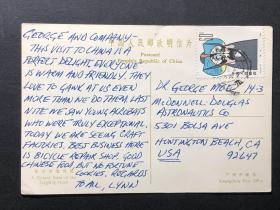 中国人民邮政明信片
Postcard
The People's Republic of China
GEORGE AND COMPANY -
THIS VISIT TO CHINA IS A
PERFECT DELIGHT. EVERYONE
IS WARM AND FRIENDLY. THEY
LOVE TO GAWK AT US EVEN
MORE THAN WE DO THEM. LAST
NITE WE SAW YOUNG ACROBATS
WHO WERE TRULY EXCEPTIONAL.
TODAY WE ARE SEEING CRAFT
FACTORIES. BEST BUSINESS HERE
IS BICYCLE REPAIR SHOP. GOOD
CHINESE FOOD BUT NO FORTUNE
COOKIES. REGARDS
TO ALL, LYNN
DR. GEORGE 14-3
MCDONNELL DOUGLAS
ASTRONAUTICS CO
5301 BOLSA AVE
HUNTINGTON BEACH, CA
USA 92647